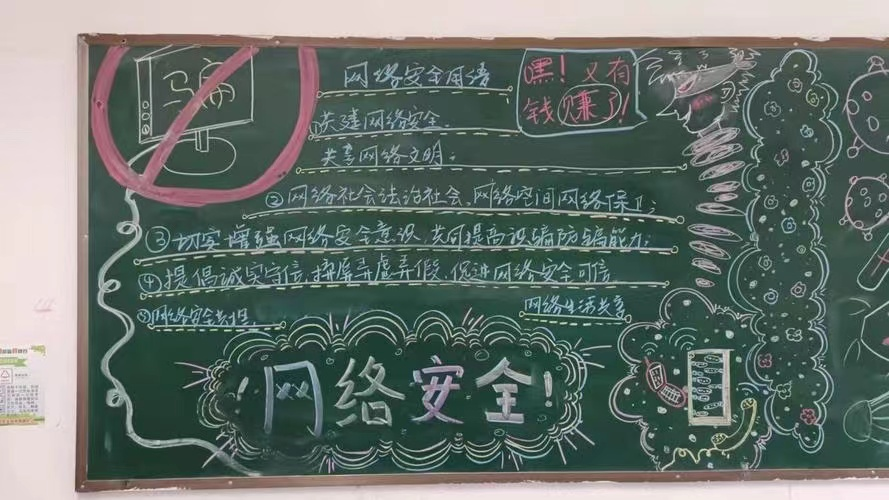 网络安全用语
嘿！又有
钱赚了！
①共建网络安全.
共享网络文明；
②网络社会法治社会、网络空间网络保卫；
③切实增强网络安全意识 共同提高识骗防骗能力；
④提倡诚实守信、摒屏弄虚弄假、促进网络安全可信
⑤网络安全共担
网络生活共享
网络安全！